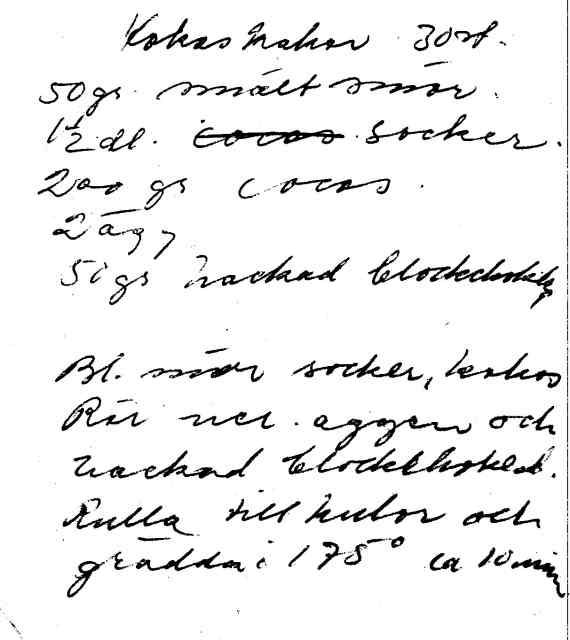 Kokoskakor 30st.
50gr smält smör.
1½ dl. cocos socker.
200 gr cocos.
2 ägg
50 gr hackad blockchoklad
Bl. smör socker, kokos
Rör ner äggen och
hackad blockchoklad.
Rulla till kulor och
grädda i 175° ca 10 min